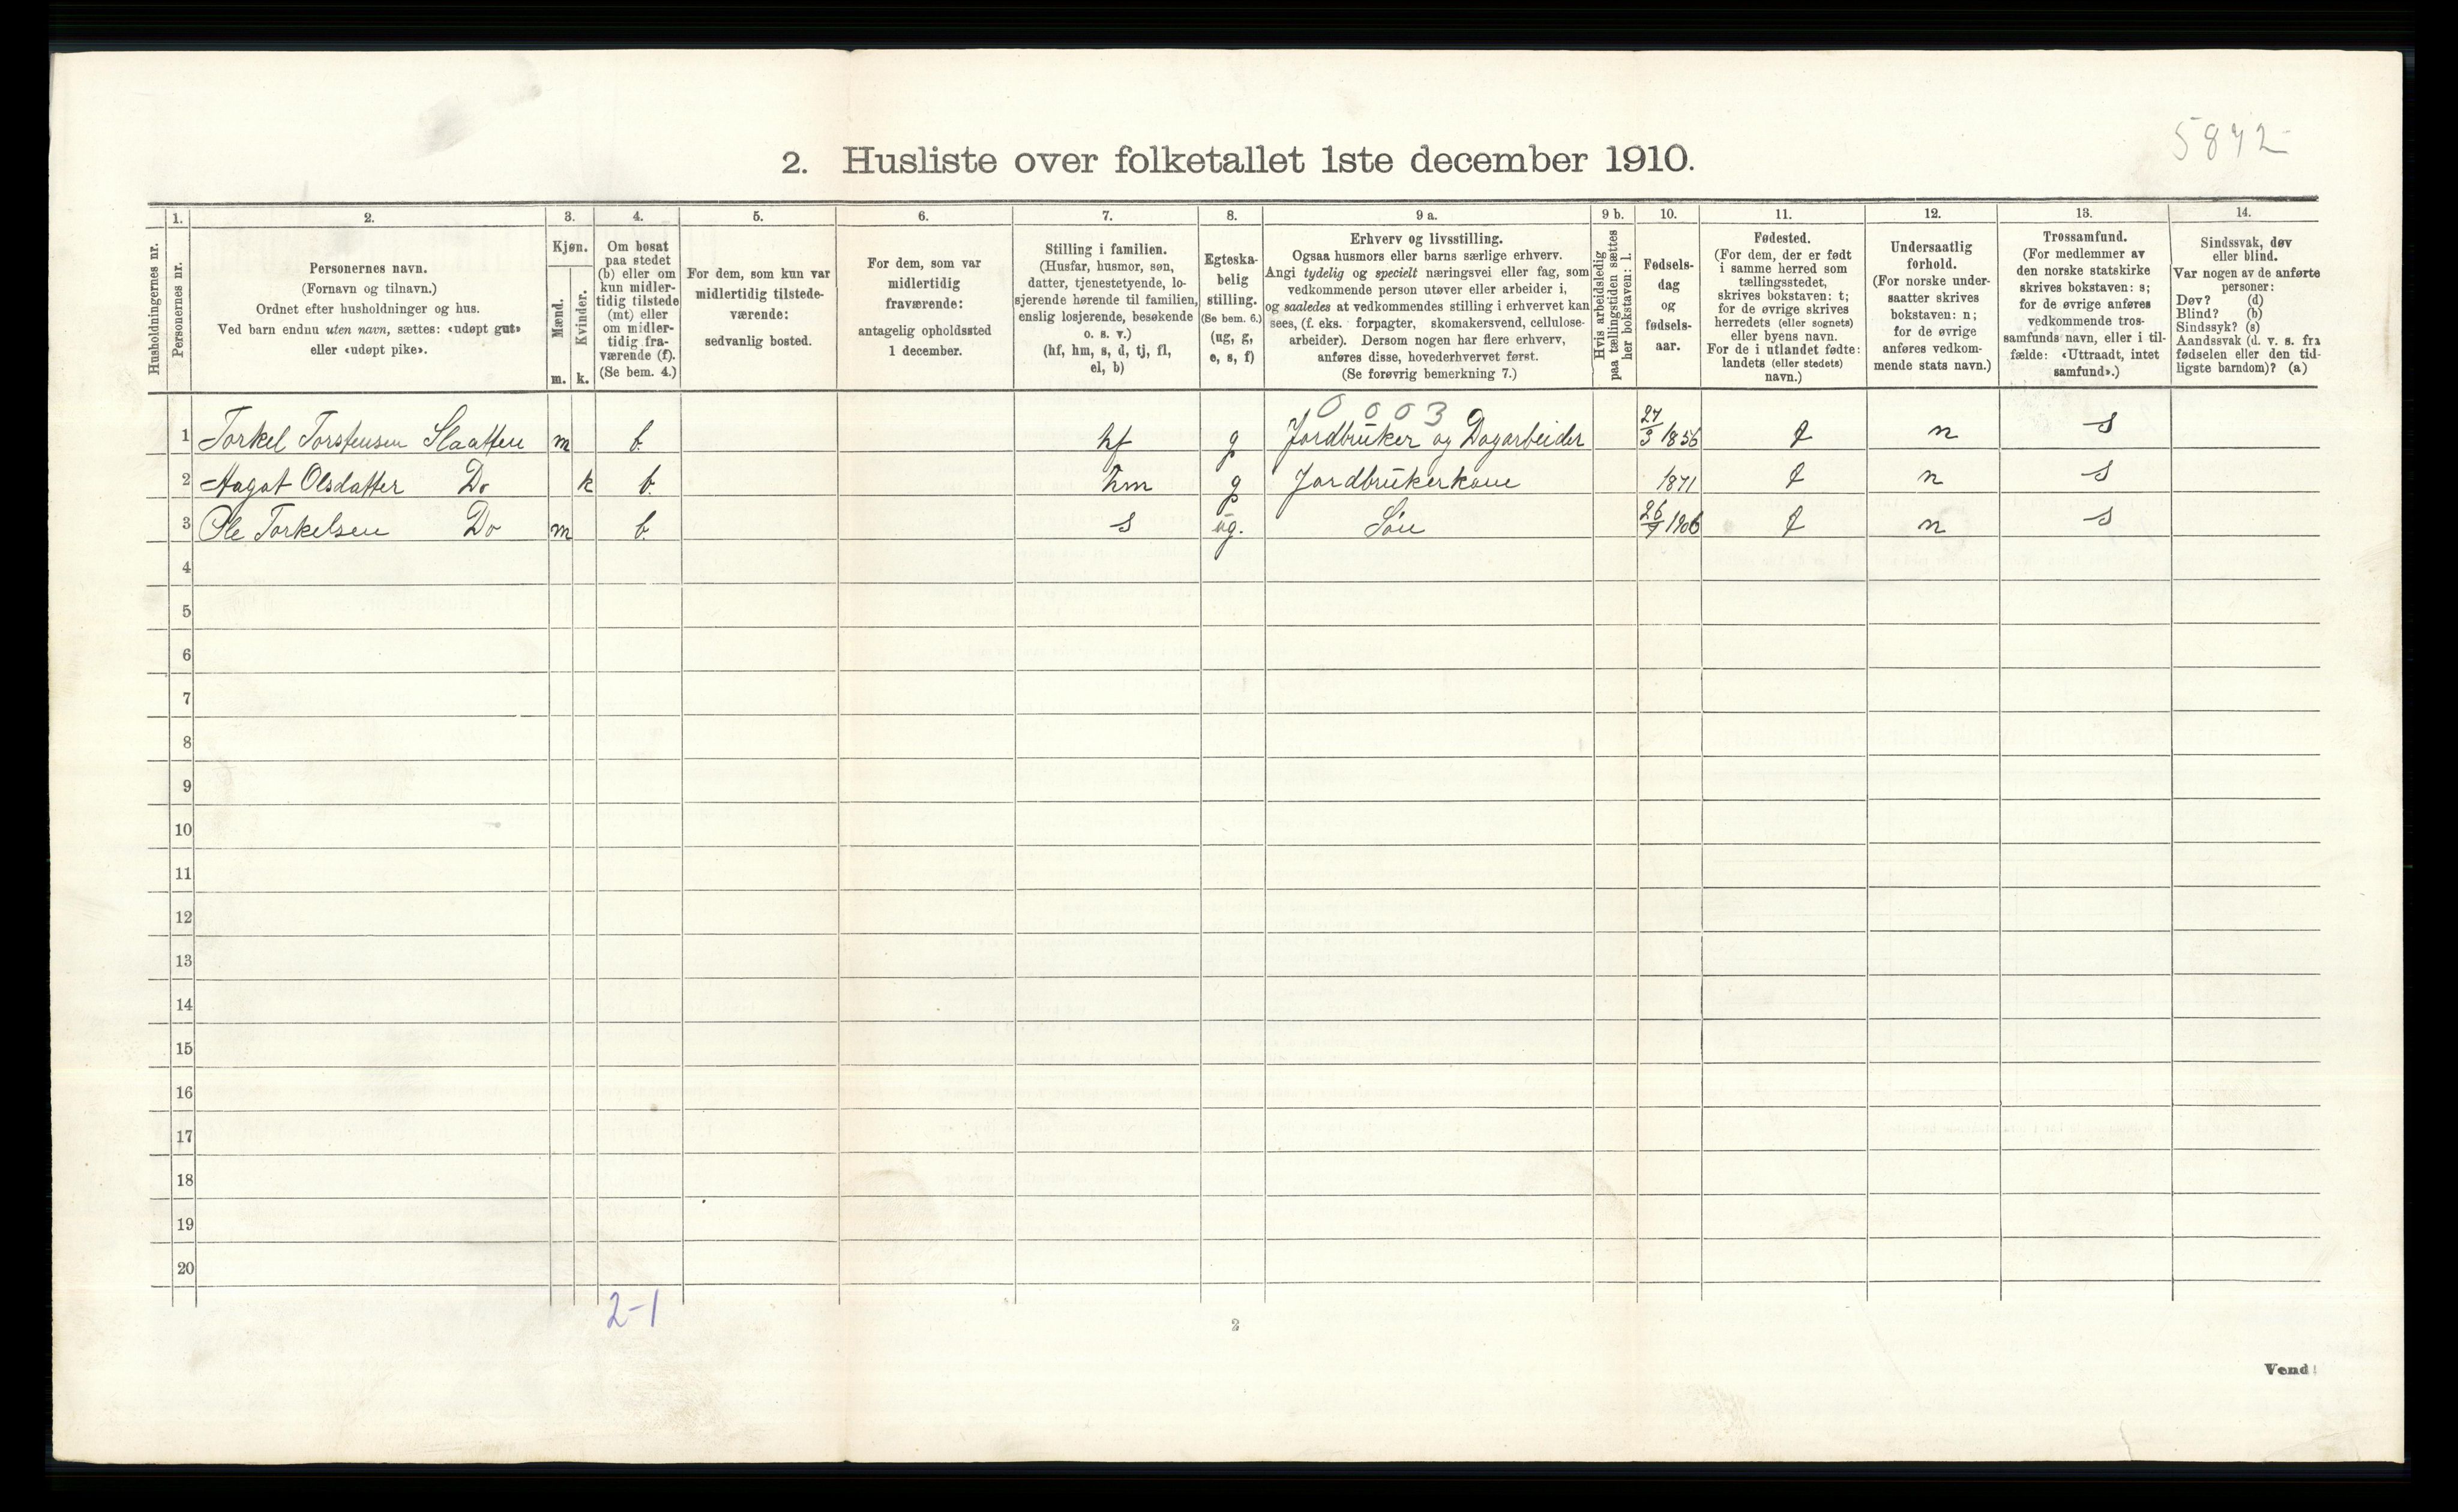 5842
2. Husliste over folketallet 1ste december 1910.
1. 2. 3. 4. 5. 6. 7. 8. 9 a. 9 b. 10. 11. 12. 13. 14.
Husholdningernes nr.
Personernes nr.
Personernes navn.
(Fornavn og tilnavn.)
Ordnet efter husholdninger og hus.
Ved barn endnu uten navn, sættes: «udøpt gut»
eller «udøpt pike».
Kjøn.
Mænd.
Kvinder.
m. k.
Om bosat
paa stedet
(b) eller om
kun midler-
tidig tilstede
(mt) eller
om midler-
tidig fra-
værende (f).
(Se bem. 4.)
For dem, som kun var
midlertidig tilstede-
værende:
sedvanlig bosted.
For dem, som var
midlertidig
fraværende:
antagelig opholdssted
1 december.
Stilling i familien.
(Husfar, husmor, søn,
datter, tjenestetyende, lo-
sjerende hørende til familien,
enslig losjerende, besøkende
o. s. v.)
(hf, hm, s, d, tj, fl,
el, b)
Egteska-
belig
stilling.
(Se bem. 6.)
(ug, g,
e, s, f)
Erhverv og livsstilling.
Ogsaa husmors eller barns særlige erhverv.
Angi tydelig og specielt næringsvei eller fag, som
vedkommende person utøver eller arbeider i,
og saaledes at vedkommendes stilling i erhvervet kan
sees, (f. eks. forpagter, skomakersvend, cellulose-
arbeider). Dersom nogen har flere erhverv,
anføres disse, hovederhvervet først.
(Se forøvrig bemerkning 7.)
Hvis arbeidsledig
paa tællingstiden sættes
her bokstaven: l.
Fødsels-
dag
og
fødsels-
aar.
Fødested.
(For dem, der er født
i samme herred som
tællingsstedet,
skrives bokstaven: t;
for de øvrige skrives
herredets (eller sognets)
eller byens navn.
For de i utlandet fødte:
landets (eller stedets)
navn.)
Undersaatlig
forhold.
(For norske under-
saatter skrives
bokstaven: n;
for de øvrige
anføres vedkom-
mende stats navn.)
Trossamfund.
(For medlemmer av
den norske statskirke
skrives bokstaven: s;
for de øvrige anføres
vedkommende tros-
samfunds navn, eller i til-
fælde: «Uttraadt, intet
samfund».)
Sindssvak, døv
eller blind.
Var nogen av de anførte
personer:
Døv? (d)
Blind? (b)
Sindssyk? (s)
Aandssvak (d. v. s. fra
fødselen eller den tid-
ligste barndom)? (a)
0 0 0 3
1 Torkel Torstensen Slaatten m b. hf g Jordbruker og Dagarbeider 27/3 1856 t n s
2 Aagot Olsdatter Do k b. hm g Jordbrukerkone 1871 t n s
3 Ole Torkelsen Do m b. s ug. Søn 26/7 1906 t n s
4
5
6
7
8
9
10
11
12
13
14
15
16
17
18
19
20
2-1
2
Vend!